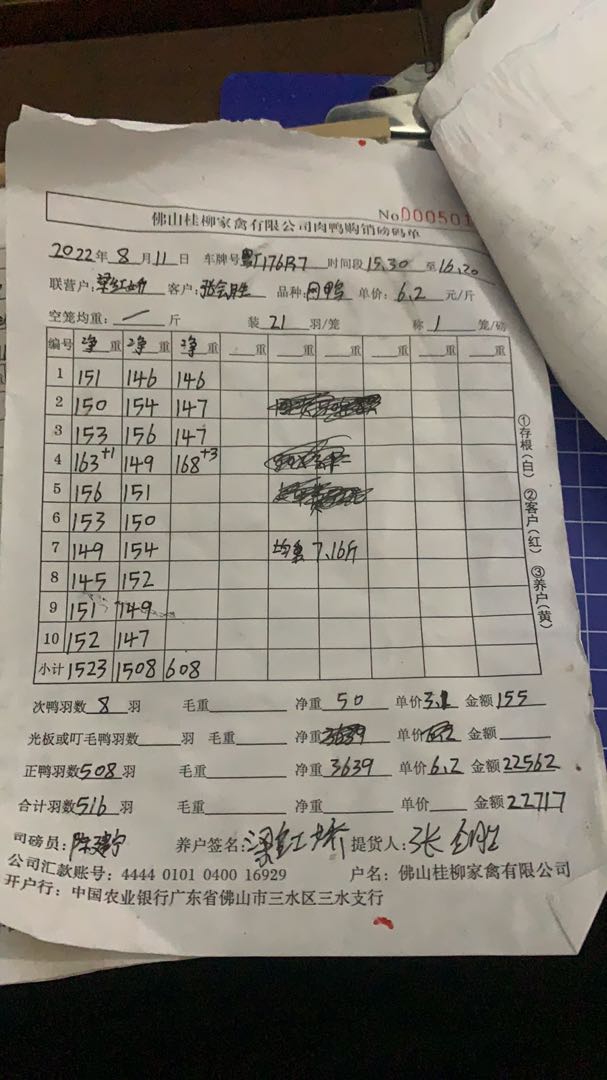 No 000501
佛山桂柳家禽有限公司肉鸭购销磅码单
2022年 8月 11日 车牌号 粤J176R7 时间段 15.30 至 16.20
联营户: 梁红娇 客户: 张会胜 品种: 肉鸭 单价: 6.2 元/斤
空笼均重: 一 斤 装 21 羽/笼 称 1 笼/磅
编号 净重 净重 净重 重 重 重 重 重
1 151 146 146
2 150 154 147
3 153 156 147
4 163+1 149 168+3
5 156 151
6 153 150
7 149 154 均重 7.16斤
8 145 152
9 151 149
10 152 147
小计 1523 1508 608
①存根(白) ②客户(红) ③养户(黄)
次鸭羽数 8 羽 毛重 净重 50 单价 3.1 金额 155
光板或叮毛鸭羽数 羽 毛重 净重 3639 单价 金额
正鸭羽数 508 羽 毛重 净重 3639 单价 6.2 金额 22562
合计羽数 516 羽 毛重 净重 单价 金额 22717
司磅员: 养户签名: 梁红娇 提货人: 张会胜
公司汇款账号: 4444 0101 0400 16929 户名: 佛山桂柳家禽有限公司
开户行: 中国农业银行广东省佛山市三水区三水支行